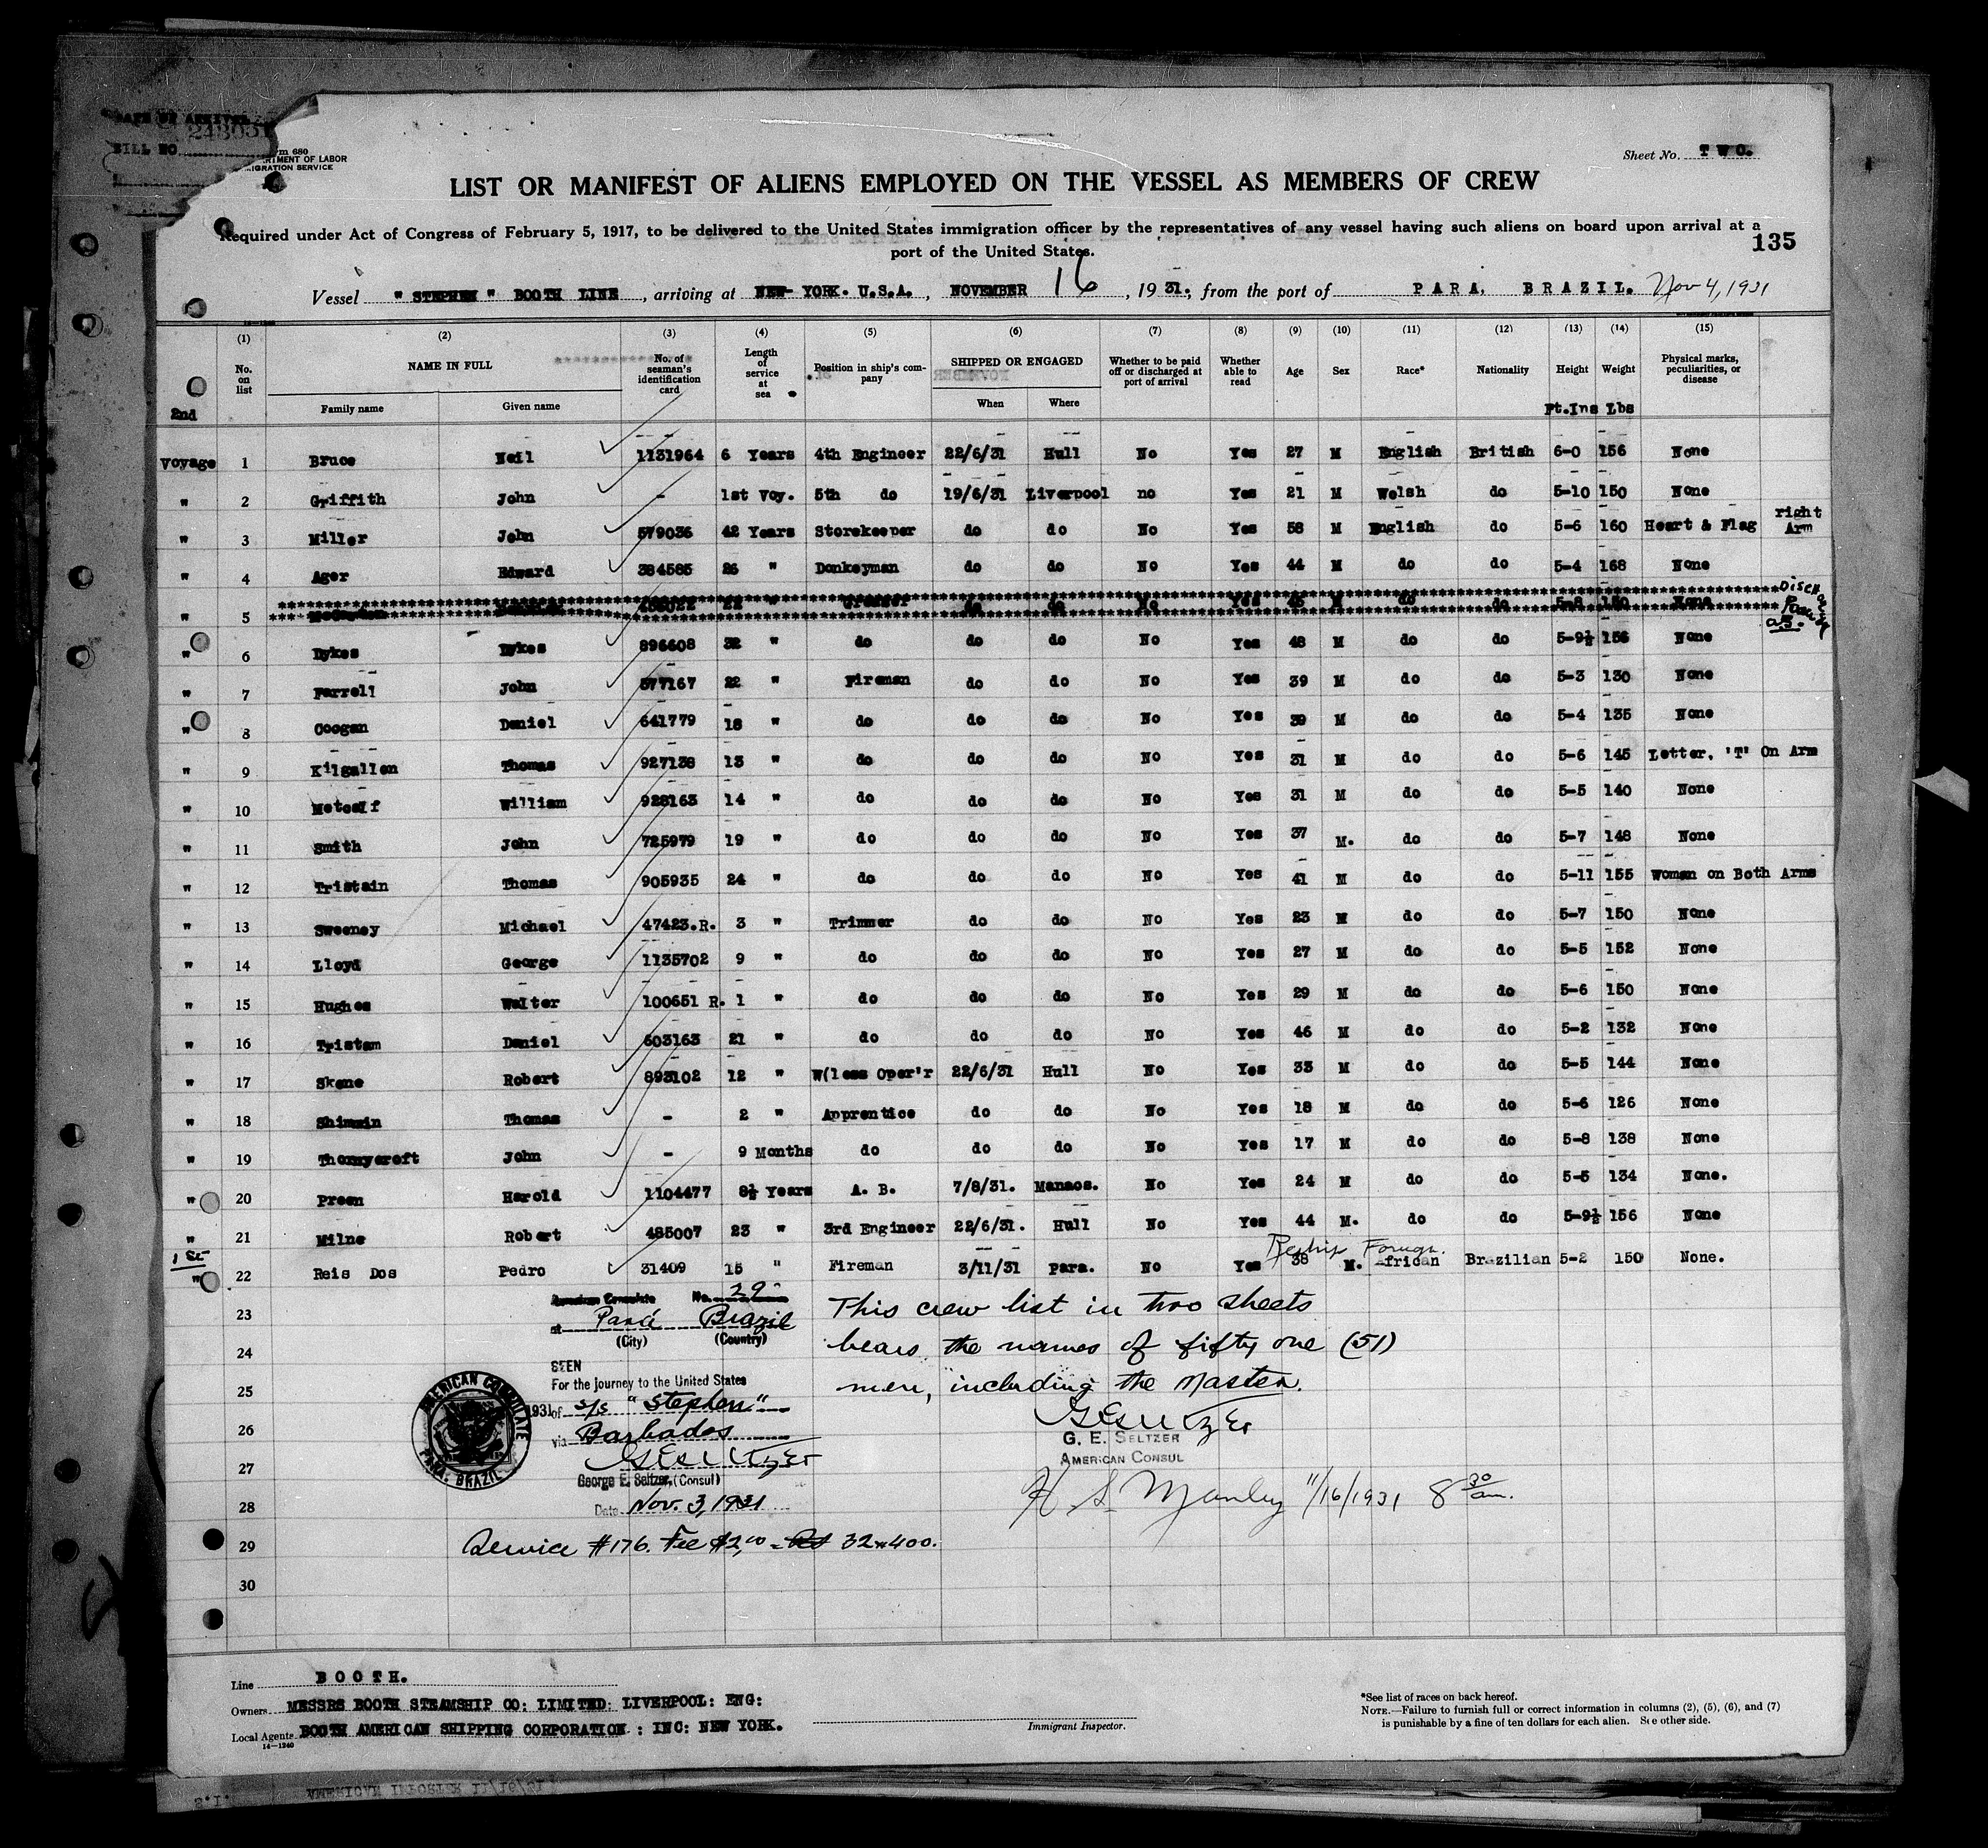 DATE OF ARRIVAL
248051
BILL NO
m 680
RTMENT OF LABOR
IGRATION SERVICE
Sheet No. T W O.
LIST OR MANIFEST OF ALIENS EMPLOYED ON THE VESSEL AS MEMBERS OF CREW
Required under Act of Congress of February 5, 1917, to be delivered to the United States immigration officer by the representatives of any vessel having such aliens on board upon arrival at a
port of the United States.
135
Vessel "STEPHEN" BOOTH LINE, arriving at NEW YORK. U.S.A., NOVEMBER 16, 1931., from the port of PARA. BRAZIL. Nov 4, 1931
(1) (2) (3) (4) (5) (6) (7) (8) (9) (10) (11) (12) (13) (14) (15)
No. on list NAME IN FULL Family name Given name No. of seaman's identification card Length of service at sea Position in ship's company SHIPPED OR ENGAGED When Where Whether to be paid off or discharged at port of arrival Whether able to read Age Sex Race* Nationality Height Weight Physical marks, peculiarities, or disease
2nd Ft.Ins Lbs
Voyage 1 Bruce Neil 1131964 6 Years 4th Engineer 22/6/31 Hull No Yes 27 M English British 6-0 156 None
" 2 Griffith John - 1st Voy. 5th do 19/6/31 Liverpool no Yes 21 M Welsh do 5-10 150 None
" 3 Miller John 579036 42 Years Storekeeper do do No Yes 58 M English do 5-6 160 Heart & Flag right Arm
" 4 Ager Edward 384585 26 " Donkeyman do do No Yes 44 M do do 5-4 168 None
" 5 22 " Greaser do do No Yes 45 M do do None
" 6 Dykes Dykes 896608 32 " do do do No Yes 48 M do do 5-9½ 156 None
" 7 Farrell John 577167 22 " Fireman do do No Yes 39 M do do 5-3 130 None
" 8 Coogan Daniel 641779 18 " do do do No Yes 39 M do do 5-4 135 None
" 9 Kilgallen Thomas 927138 13 " do do do No Yes 31 M do do 5-6 145 Letter, 'T' On Arm
" 10 Metcalf William 928163 14 " do do do No Yes 31 M do do 5-5 140 None
" 11 Smith John 725979 19 " do do do No Yes 37 M. do do 5-7 148 None
" 12 Tristain Thomas 905935 24 " do do do No Yes 41 M do do 5-11 155 Woman on Both Arms
" 13 Sweeney Michael 47423.R. 3 " Trimmer do do No Yes 23 M do do 5-7 150 None
" 14 Lloyd George 1135702 9 " do do do No Yes 27 M do do 5-5 152 None
" 15 Hughes Walter 100651 R. 1 " do do do No Yes 29 M do do 5-6 150 None
" 16 Tristam Daniel 603163 21 " do do do No Yes 46 M do do 5-2 132 None
" 17 Skene Robert 893102 12 " W(less Oper'r 22/6/31 Hull No Yes 33 M do do 5-5 144 None
" 18 Shimmin Thomas - 2 " Apprentice do do No Yes 18 M do do 5-6 126 None
" 19 Thornycroft John - 9 Months do do do No Yes 17 M do do 5-8 138 None
" 20 Preen Harold 1104477 8½ Years A. B. 7/8/31. Manaos. No Yes 24 M do do 5-5 134 None.
" 21 Milne Robert 485007 23 " 3rd Engineer 22/6/31. Hull No Yes 44 M. do do 5-9½ 156 None
1st Reship Foreign.
" 22 Reis Dos Pedro 31409 15 " Fireman 3/11/31 Para. No Yes 38 M. African Brazilian 5-2 150 None.
American Consulate No. 29
23 at Pará Brazil This crew list in two sheets
(City) (Country)
24 bears the names of fifty one (51)
SEEN
For the journey to the United States
25 men, including the Master.
1931 of s/s "Stephen"
26 via Barbados
G. E. SELTZER
AMERICAN CONSUL
27 George E. Seltzer, (Consul)
28 Date Nov. 3, 1931 H. S. Manley 11/16/1931 8 30 am.
AMERICAN CONSULATE PARA, BRAZIL
29 Service #176. Fee $2.00 = 32$400.
30
Line BOOTH.
Owners MESSRS BOOTH STEAMSHIP CO: LIMITED: LIVERPOOL: ENG:
Local Agents BOOTH AMERICAN SHIPPING CORPORATION.: INC: NEW YORK.
14—1240
Immigrant Inspector.
*See list of races on back hereof.
NOTE.—Failure to furnish full or correct information in columns (2), (5), (6), and (7)
is punishable by a fine of ten dollars for each alien. See other side.